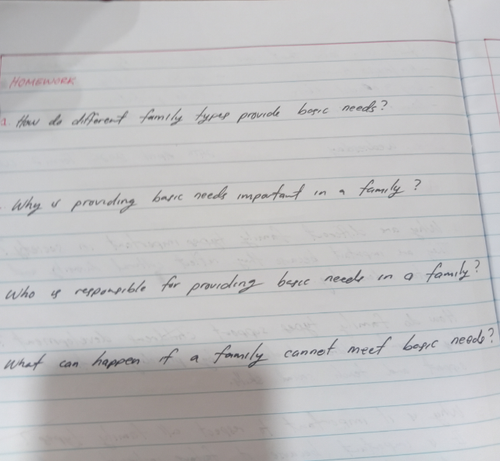 HOMEWORK
1. How do different family types provide basic needs?
. Why is providing basic needs important in a family?
Who is responsible for providing basic needs in a family?
What can happen if a family cannot meet basic needs?